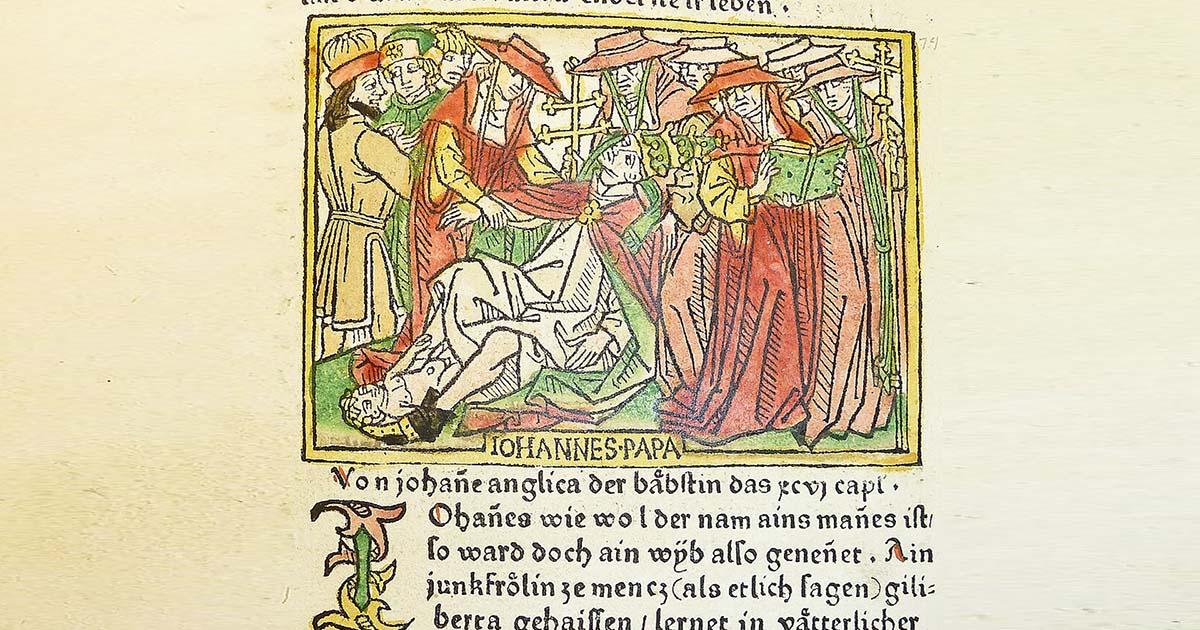 leben .
IOHANNES·PAPA
Von johañe anglica der båbstin das xcvj capl .
IOhañes wie wol der nam ains mañes ist/
so ward doch ain wÿb also geneñet . Ain
junkfrôlin ze mencz (als etlich sagen) gili=
berta gehaissen / lernet in våtterlicher